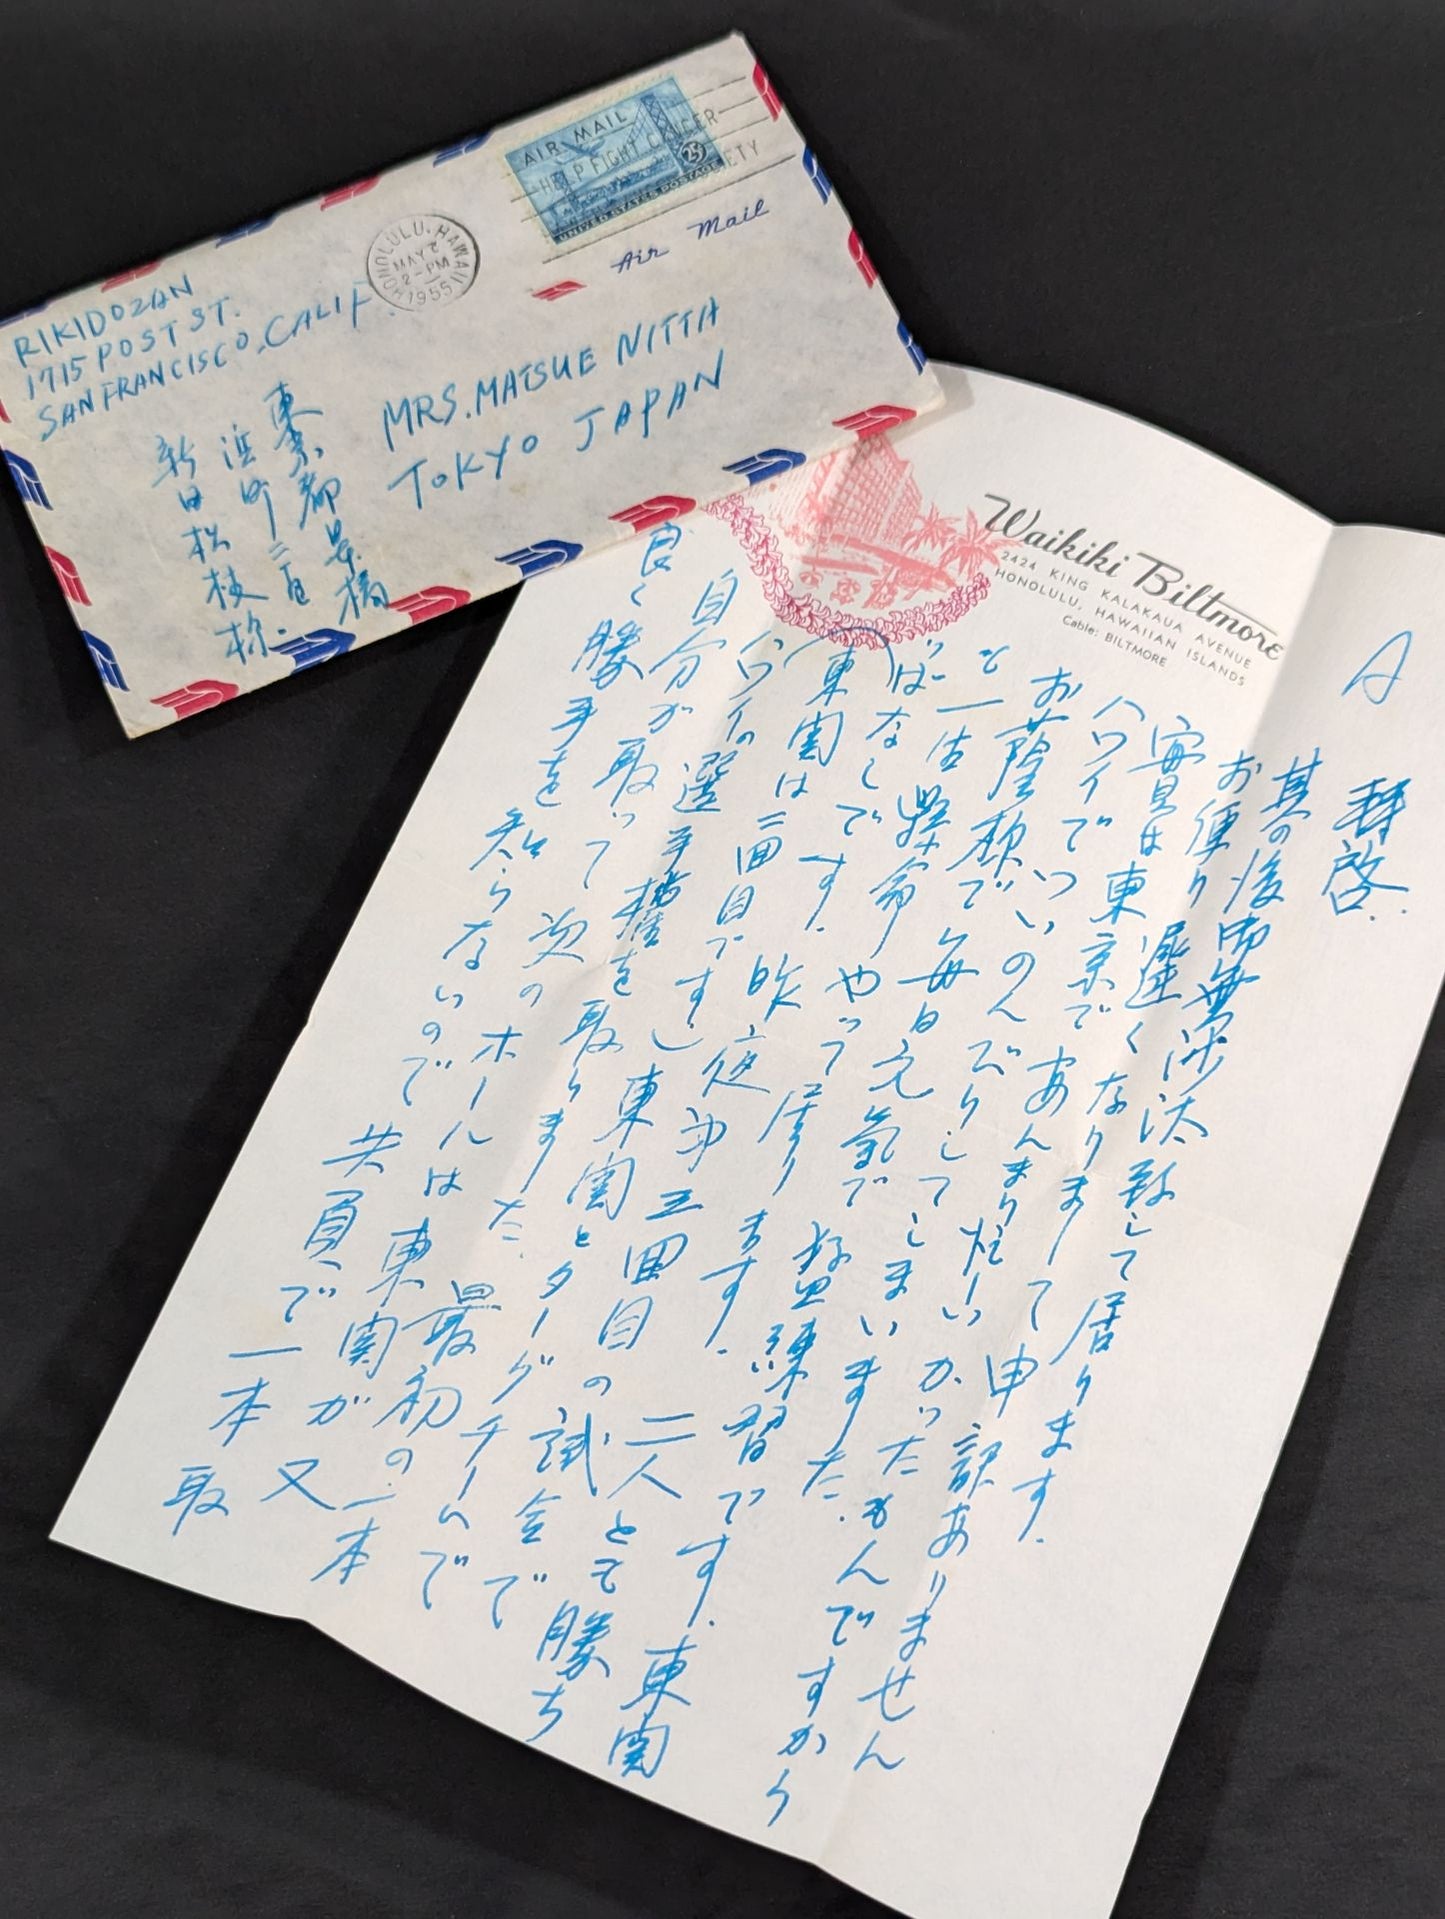 AIR MAIL
HELP FIGHT CANCER
25¢
UNITED STATES POSTAGE
Air Mail
HONOLULU, HAWAII
MAY
2-PM
1955
RIKIDOZAN
1715 POST ST.
SAN FRANCISCO, CALIF.
MRS. MATSUE NITTA
TOKYO JAPAN
東京都京橋
浜町二の
新田松枝様
Waikiki Biltmore
2424 KING KALAKAUA AVENUE
HONOLULU, HAWAIIAN ISLANDS
Cable: BILTMORE
拝啓
其の後御無沙汰致して居ります.
お便り遅くなりまして申訳ありません
実は東京であんまり忙しかったもんですから
ハワイでついのんびりしてしまいました.
お蔭様で毎日元気で 練習です.
一古懸命やって居ります. 二人とも勝ち
ばなしです. 昨夜 五回目の試合で
(東関は二回目ですし)東関とターグチームで
ハワイの選手権を取りました. 最初の一本
自分が取って次のホールは東関が又
良く勝手を知らないので 失負で一本取